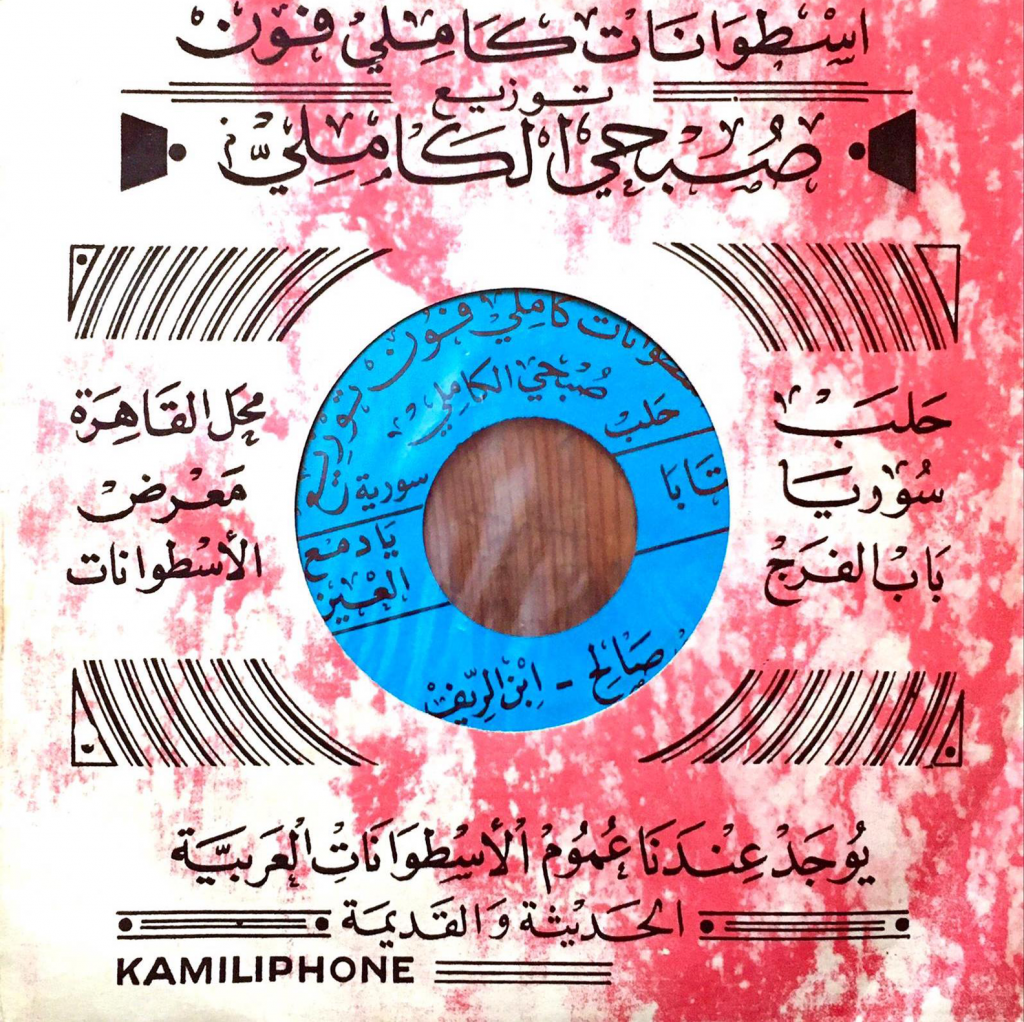 اسْطِوَانَات كَامِلي فون
توزيع
صُبْحي الكَامِليّ
حَلبْ
سُوريَا
بَابُ الفَرَجْ
محَل القَاهِرَة
مَعْرضْ
الأسْطوانات
كامِلي فون توزيع
صُبْحي الكامِلي
حَلب
سورية
تَابَا
يَا دمع
العْين
صَالح - ابْن الرّيفْ
يُوجَدْ عِنْدَنَا عُمُومْ الْأسْطِوَانَاتِ الْعَرَبيَّة
الحَديْثة وَالقَديمَة
KAMILIPHONE